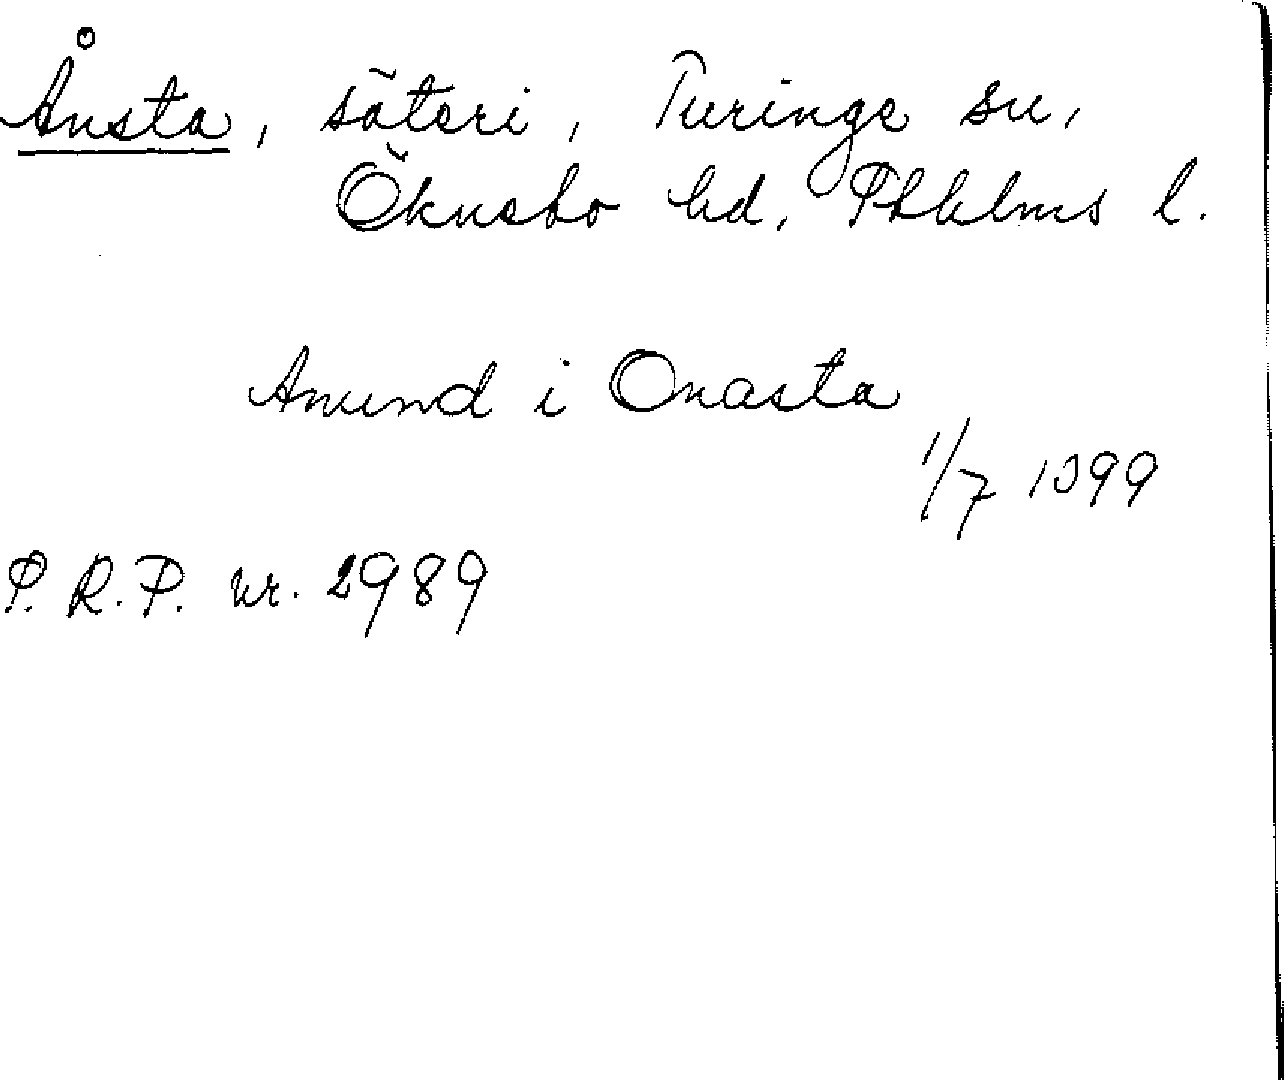 Ånsta, säteri, Turinge sn,
Öknebo hd, Sthlms l.
Anund i Onasta
1/7 1399
S.R.P. nr. 2989